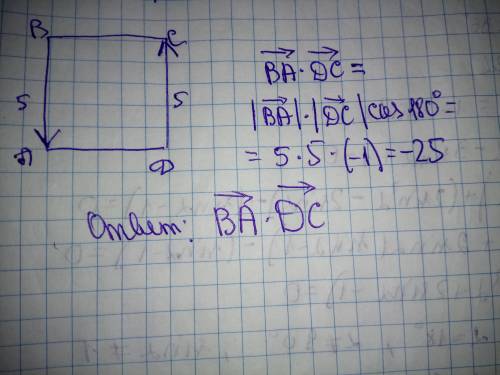 B C
5 5
A D
BA · DC =
|BA| · |DC| cos 180° =
= 5 · 5 · (-1) = -25
Ответ: BA · DC